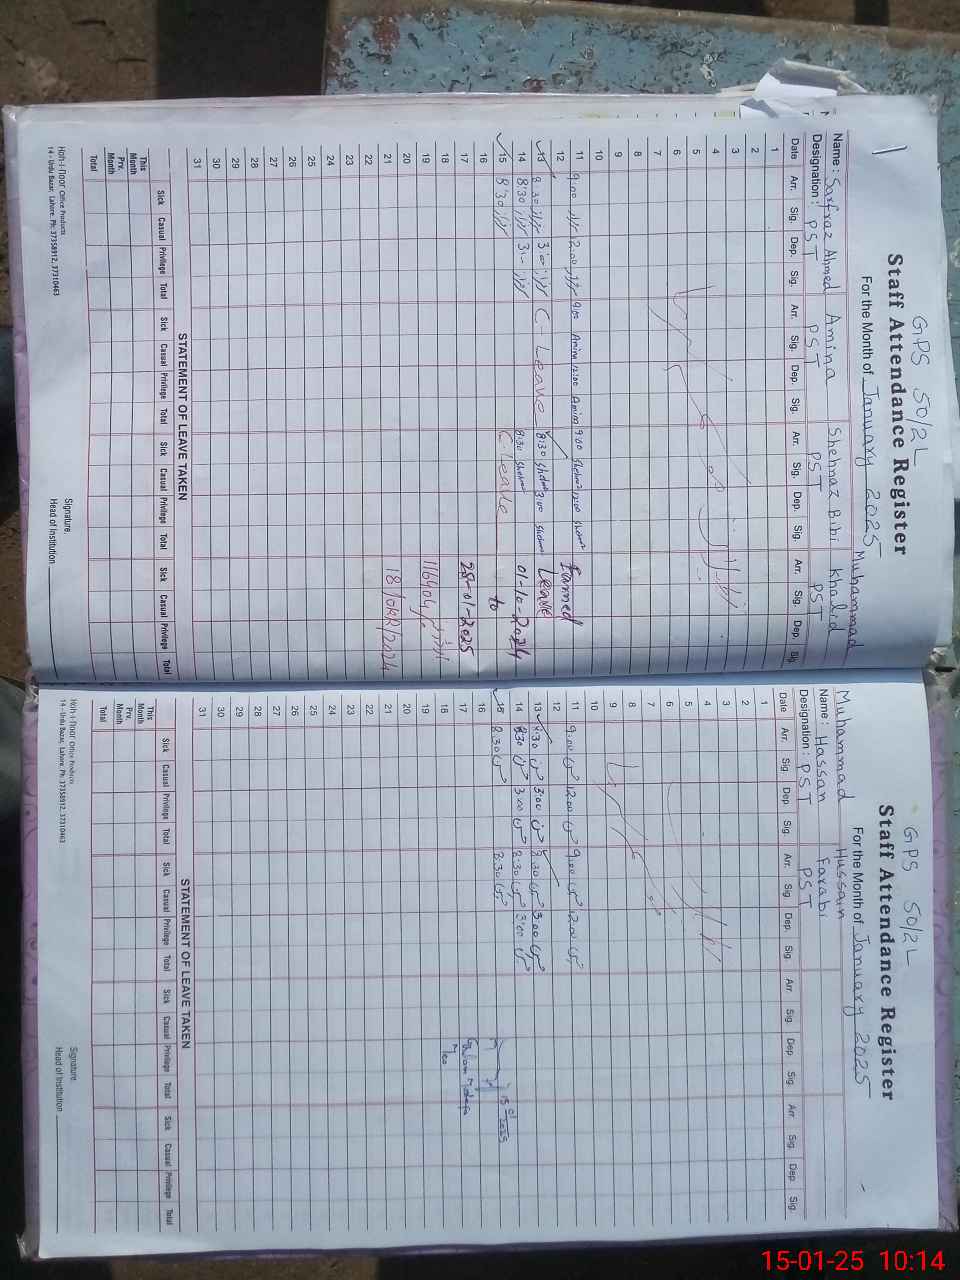 GPS 50/2L
Staff Attendance Register
For the Month of January 2025
Name: Sarfraz Ahmed Amina Shehnaz Bibi Muhammad Khalid
Designation: PST PST PST PST
Date Arr. Sig. Dep. Sig. Arr. Sig. Dep. Sig. Arr. Sig. Dep. Sig. Arr. Sig. Dep. Sig.
1
2
3
4
5
6
7
8
9
10
11 9:00 12:00 9:00 Amina 12:00 Amina 9:00 12:00 Earned
12
13 8:30 3:00 C. Leave 8:30 3:00 Leave
14 8:30 3:00 8:30 01-10-2024
15 8:30 C. Leave to
16
17 28-01-2025
18
19
20
21
22
23
24
25
26
27
28
29
30
31
STATEMENT OF LEAVE TAKEN
Sick Casual Privilege Total Sick Casual Privilege Total Sick Casual Privilege Total Sick Casual Privilege Total
This Month
Prv. Month
Total
Hoh-i-Noor Office Products
14 - Urdu Bazar, Lahore. Ph: 37358912, 37310463
Signature.
Head of Institution
GPS 50/2L
Staff Attendance Register
For the Month of January 2025
Muhammad Hussain
Name: Hassan Farabi
Designation: PST PST
Date Arr. Sig. Dep. Sig. Arr. Sig. Dep. Sig. Arr. Sig. Dep. Sig. Arr. Sig. Dep. Sig.
1
2
3
4
5
6
7
8
9
10
11 9:00 12:00 9:00 12:00
12
13 8:30 3:00 8:30 3:00
14 8:30 3:00 8:30 3:00
15 8:30 8:30
16
17
18
19
20
21
22
23
24
25
26
27
28
29
30
31
STATEMENT OF LEAVE TAKEN
Sick Casual Privilege Total Sick Casual Privilege Total Sick Casual Privilege Total Sick Casual Privilege Total
This Month
Prv. Month
Total
Hoh-i-Noor Office Products
14 - Urdu Bazar, Lahore. Ph: 37358912, 37310463
Signature.
Head of Institution
15-01-25 10:14